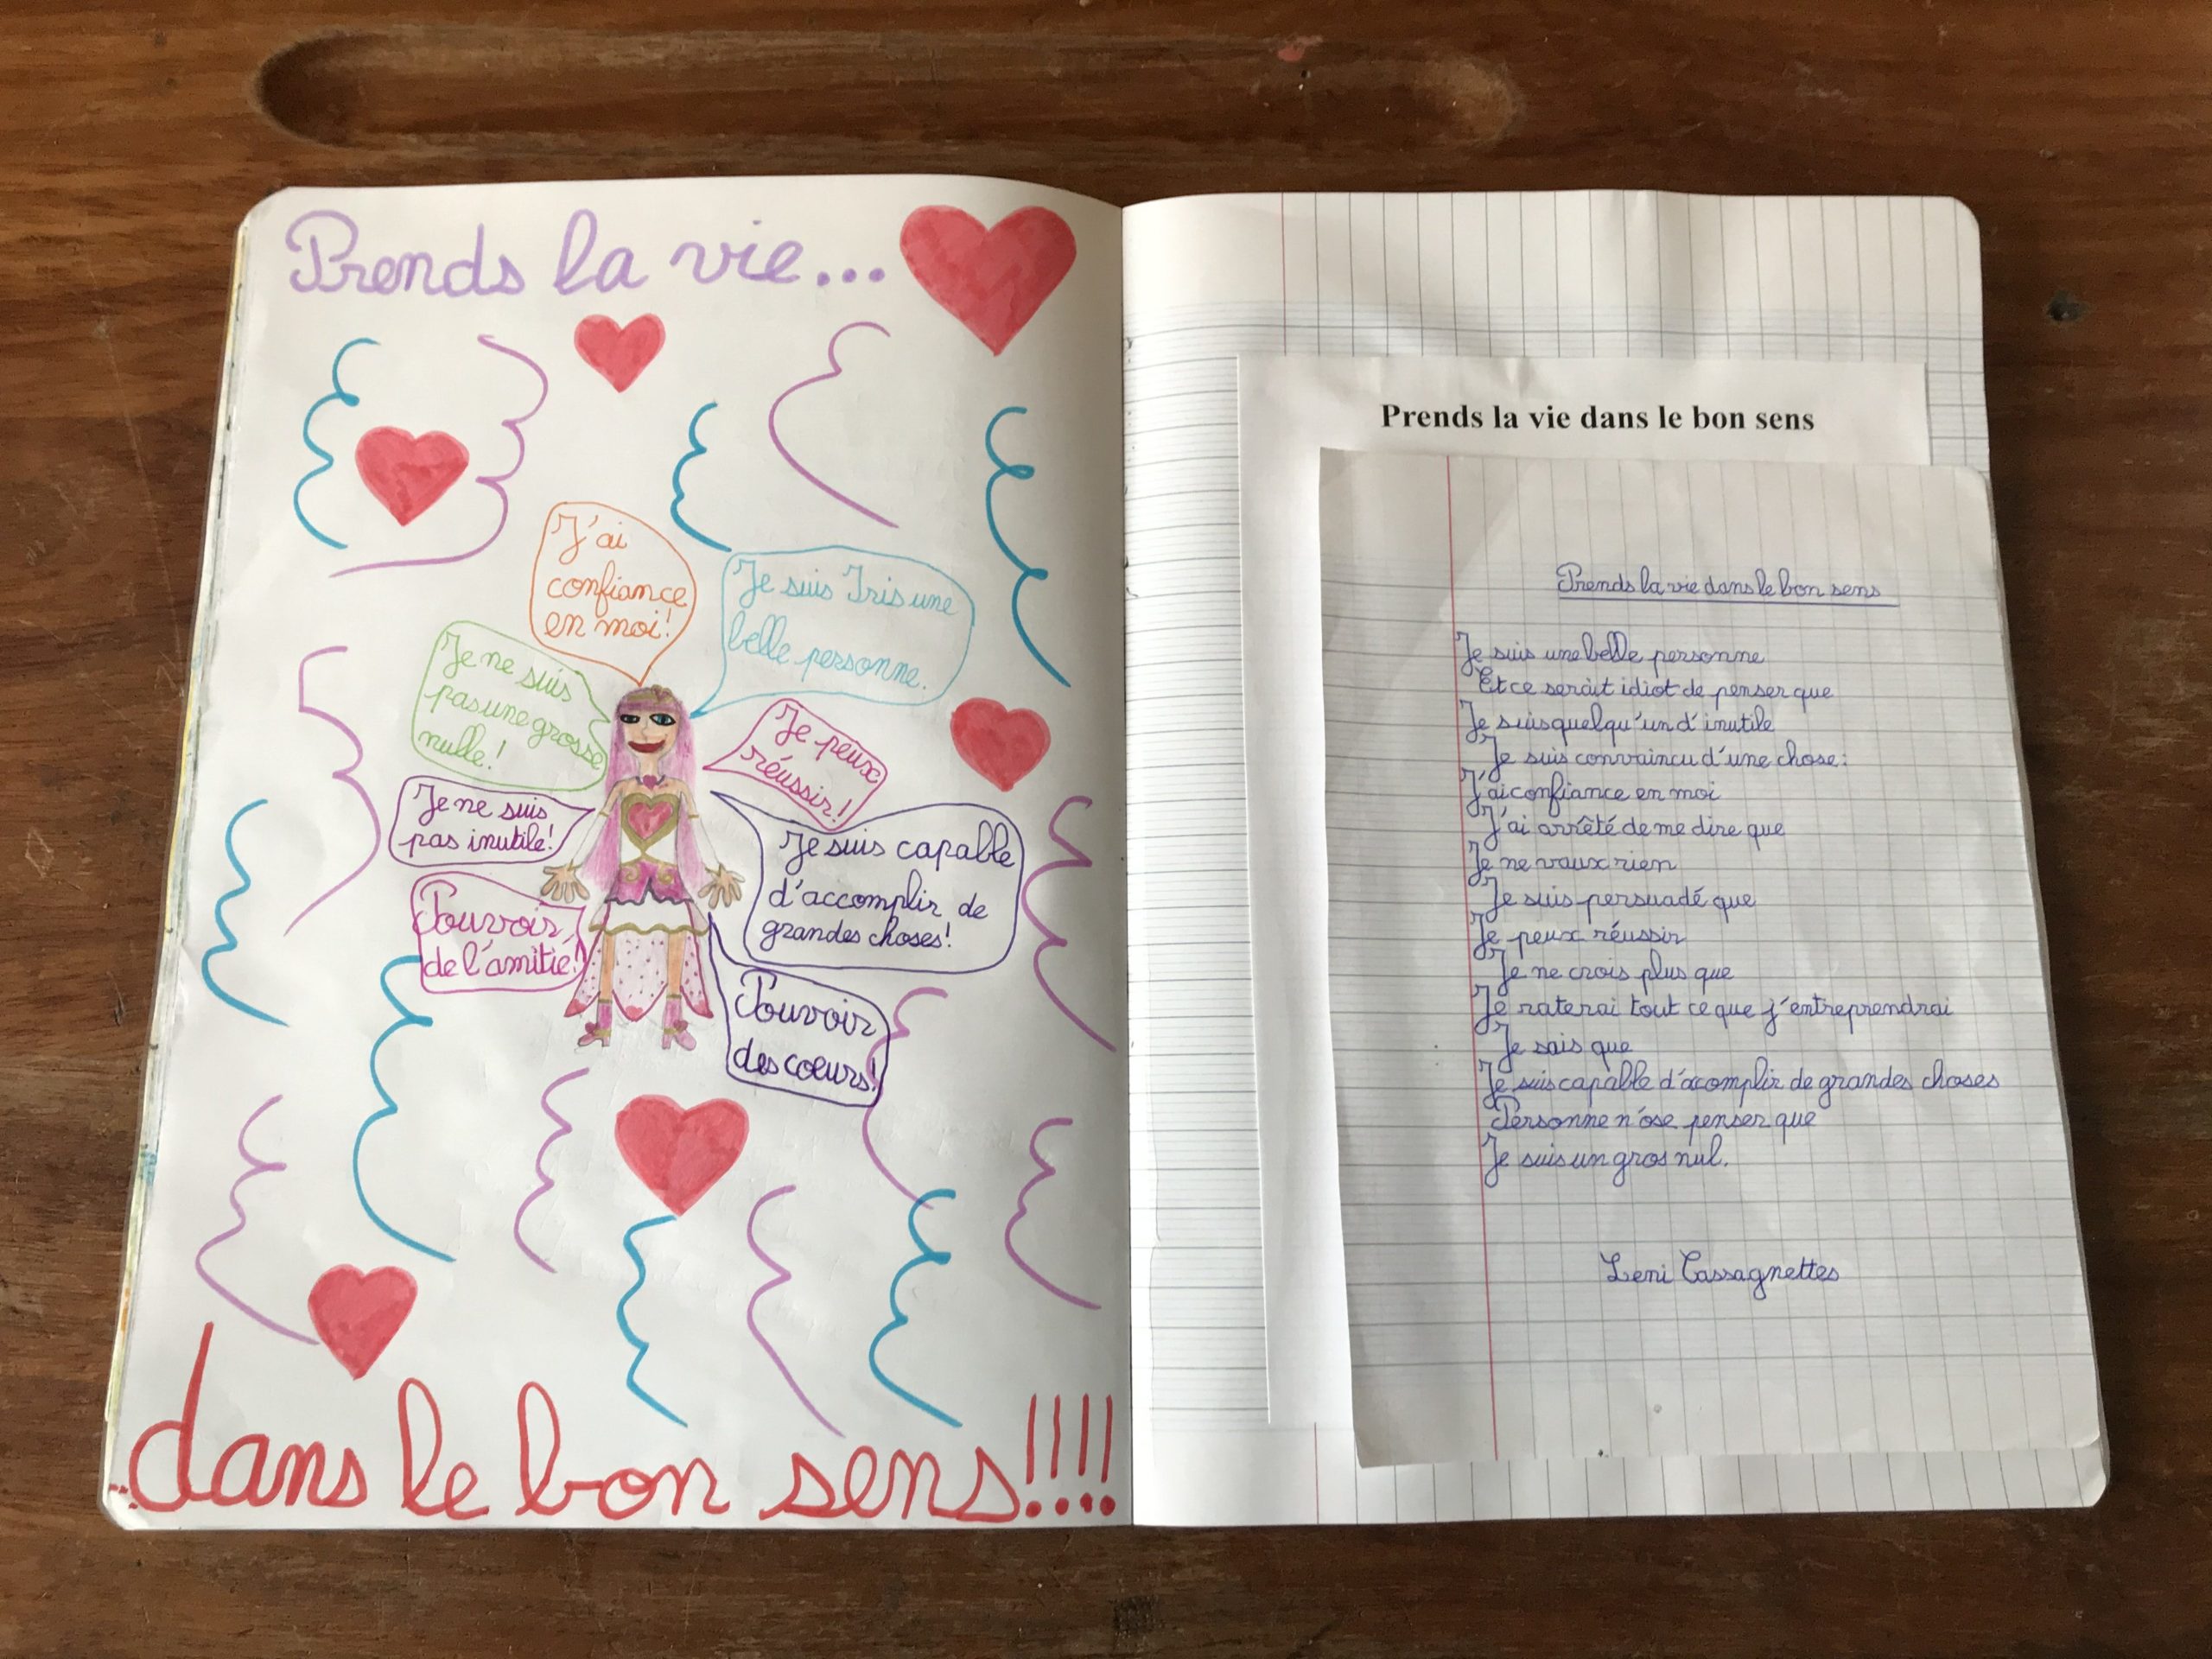 Prends la vie...
J'ai
confiance
en moi!
Je suis Iris une
belle personne.
Je ne suis
pas une grosse
nulle!
Je peux
réussir!
Je ne suis
pas inutile!
Je suis capable
d'accomplir de
grandes choses!
Pouvoir
de l'amitié!
Pouvoir
des coeurs!
dans le bon sens!!!!
Prends la vie dans le bon sens
Prends la vie dans le bon sens
Je suis une belle personne
Et ce serait idiot de penser que
Je suis quelqu'un d'inutile
Je suis convaincu d'une chose:
J'ai confiance en moi
J'ai arrêté de me dire que
Je ne vaux rien
Je suis persuadé que
Je peux réussir
Je ne crois plus que
Je raterai tout ce que j'entreprendrai
Je sais que
Je suis capable d'acomplir de grandes choses
Personne n'ose penser que
Je suis un gros nul.
Leni Cassagnettes